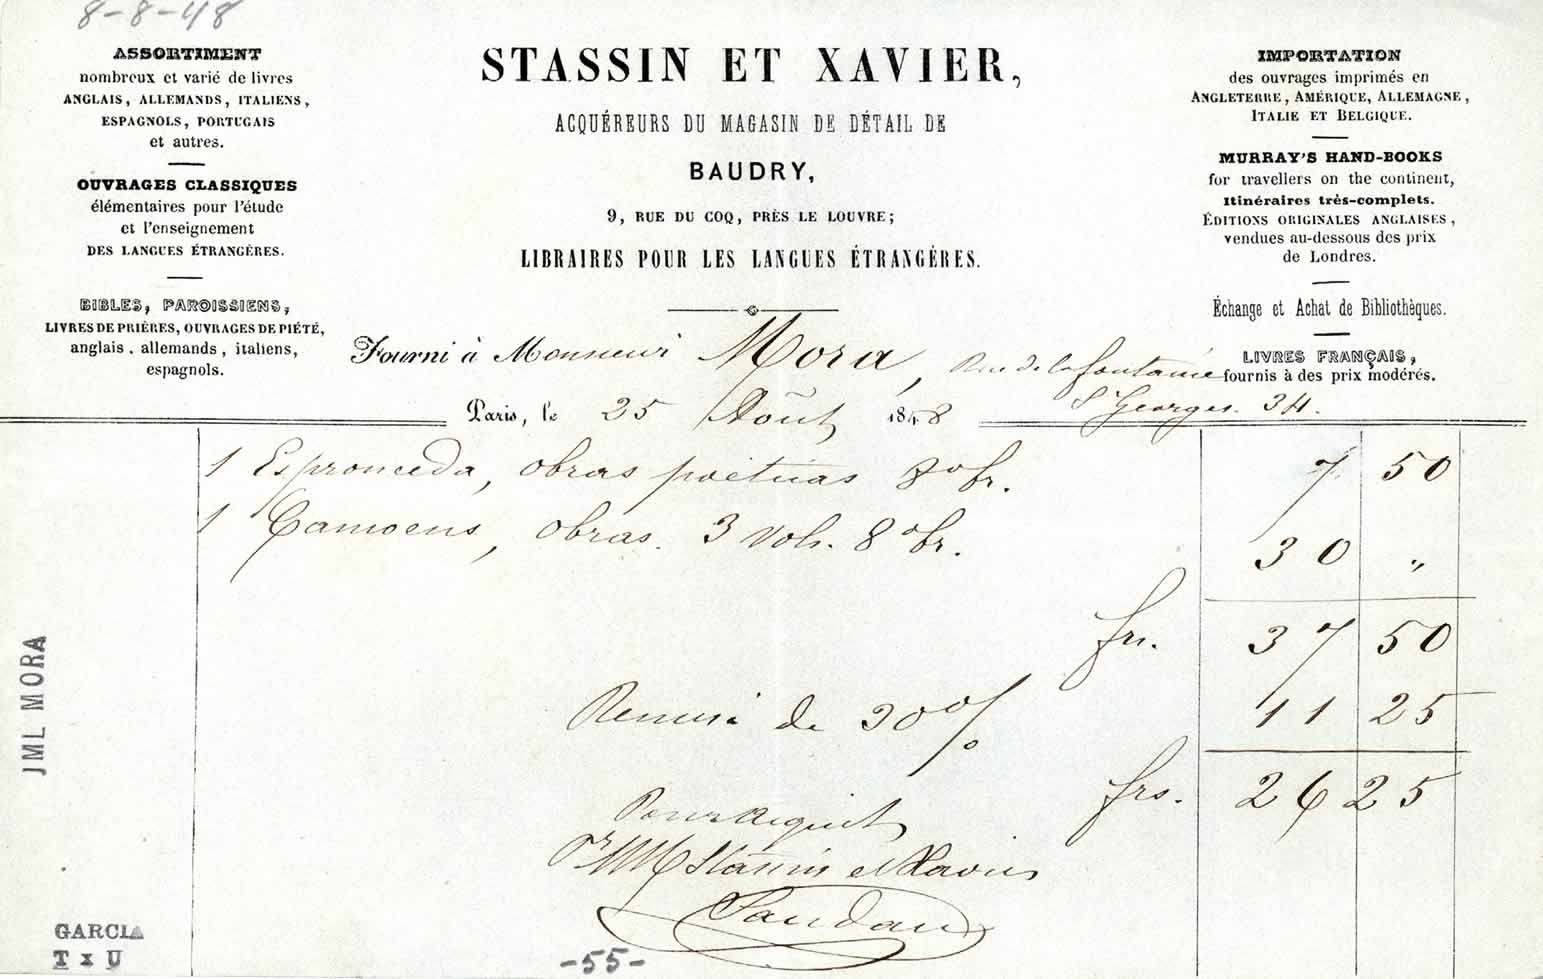 8-8-48
ASSORTIMENT
nombreux et varié de livres
ANGLAIS, ALLEMANDS, ITALIENS,
ESPAGNOLS, PORTUGAIS
et autres.
OUVRAGES CLASSIQUES
élémentaires pour l'étude
et l'enseignement
DES LANGUES ÉTRANGÈRES.
BIBLES, PAROISSIENS,
LIVRES DE PRIÈRES, OUVRAGES DE PIÉTÉ,
anglais, allemands, italiens,
espagnols.
STASSIN ET XAVIER,
ACQUÉREURS DU MAGASIN DE DÉTAIL DE
BAUDRY,
9, RUE DU COQ, PRÈS LE LOUVRE;
LIBRAIRES POUR LES LANGUES ÉTRANGÈRES.
IMPORTATION
des ouvrages imprimés en
ANGLETERRE, AMÉRIQUE, ALLEMAGNE,
ITALIE ET BELGIQUE.
MURRAY'S HAND-BOOKS
for travellers on the continent,
Itinéraires très-complets.
ÉDITIONS ORIGINALES ANGLAISES,
vendues au-dessous des prix
de Londres.
Échange et Achat de Bibliothèques.
LIVRES FRANÇAIS,
fournis à des prix modérés.
Fourni à Monsieur Mora, Rue de la fontaine
St Georges. 34.
Paris, le 25 Août 1848
1 Espronceda, obras poeticas 8º br. 7 50
1 Camoens, obras. 3 vols. 8º br. 30 "
frs. 37 50
Remise de 30 % 11 25
frs. 26 25
Pour acquit
Pr MM Stassin et Xavier
JML MORA
GARCIA
T x U
-55-